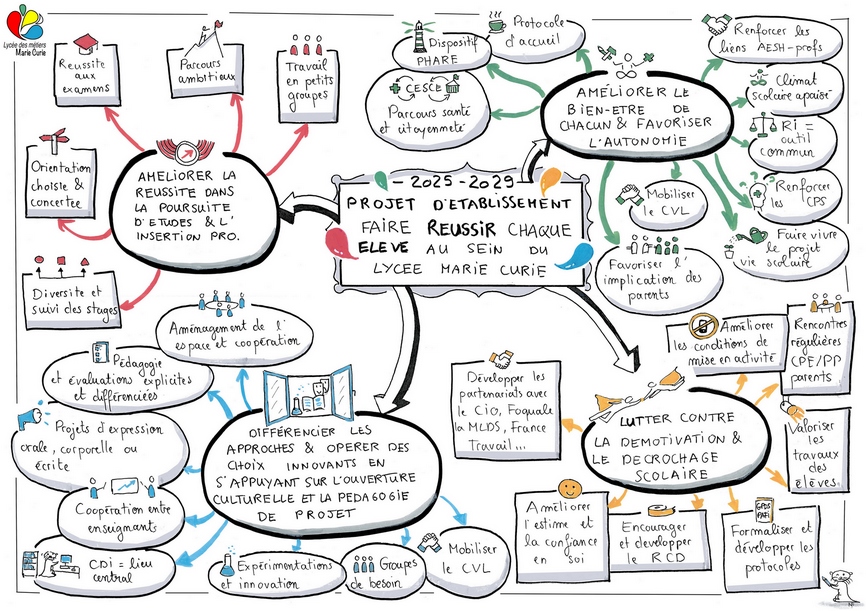 Lycée des métiers
Marie Curie
Reussite
aux
examens
Parcours
ambitieux
Travail
en petits
groupes
Orientation
choisie &
concertée
Diversité et
suivi des stages
AMELIORER LA
REUSSITE DANS
LA POURSUITE
D'ETUDES & L'
INSERTION PRO.
- 2025-2029 -
PROJET D'ETABLISSEMENT
FAIRE REUSSIR CHAQUE
ELEVE AU SEIN DU
LYCEE MARIE CURIE
Dispositif
PHARE
Protocole
d'accueil
CESCE
Parcours santé
et citoyenneté
AMÉLIORER LE
BIEN-ETRE DE
CHACUN & FAVORISER
L'AUTONOMIE
Renforcer les
liens AESH-profs
Climat
scolaire apaisé
Ri =
outil
commun
Renforcer
les CPS
Faire vivre
le projet
vie scolaire
Mobiliser
le CVL
Favoriser l'
implication des
parents
Aménagement de l'
espace et coopération
Pédagogie
et évaluations explicites
et différenciées
Projets d'expression
orale, corporelle ou
écrite
Coopération entre
enseignants
CDi = lieu
central
DIFFÉRENCIER LES
APPROCHES & OPERER DES
CHOIX INNOVANTS EN
S'APPUYANT SUR L'OUVERTURE
CULTURELLE ET LA PEDAGOGIE
DE PROJET
Expérimentations
et innovation
Groupes
de besoin
Mobiliser
le CVL
Développer les
partenariats avec
le CiO, Foquale
la MLDS, France
Travail...
LUTTER CONTRE
LA DEMOTIVATION &
LE DECROCHAGE
SCOLAIRE
Améliorer
les conditions de
mise en activité
Rencontres
régulières
CPE/PP
parents
Valoriser
les
travaux
des
élèves
Améliorer
l'estime et
la confiance
en soi
Encourager
et développer
le RCD
GPDS
PAFI
Formaliser et
développer les
protocoles